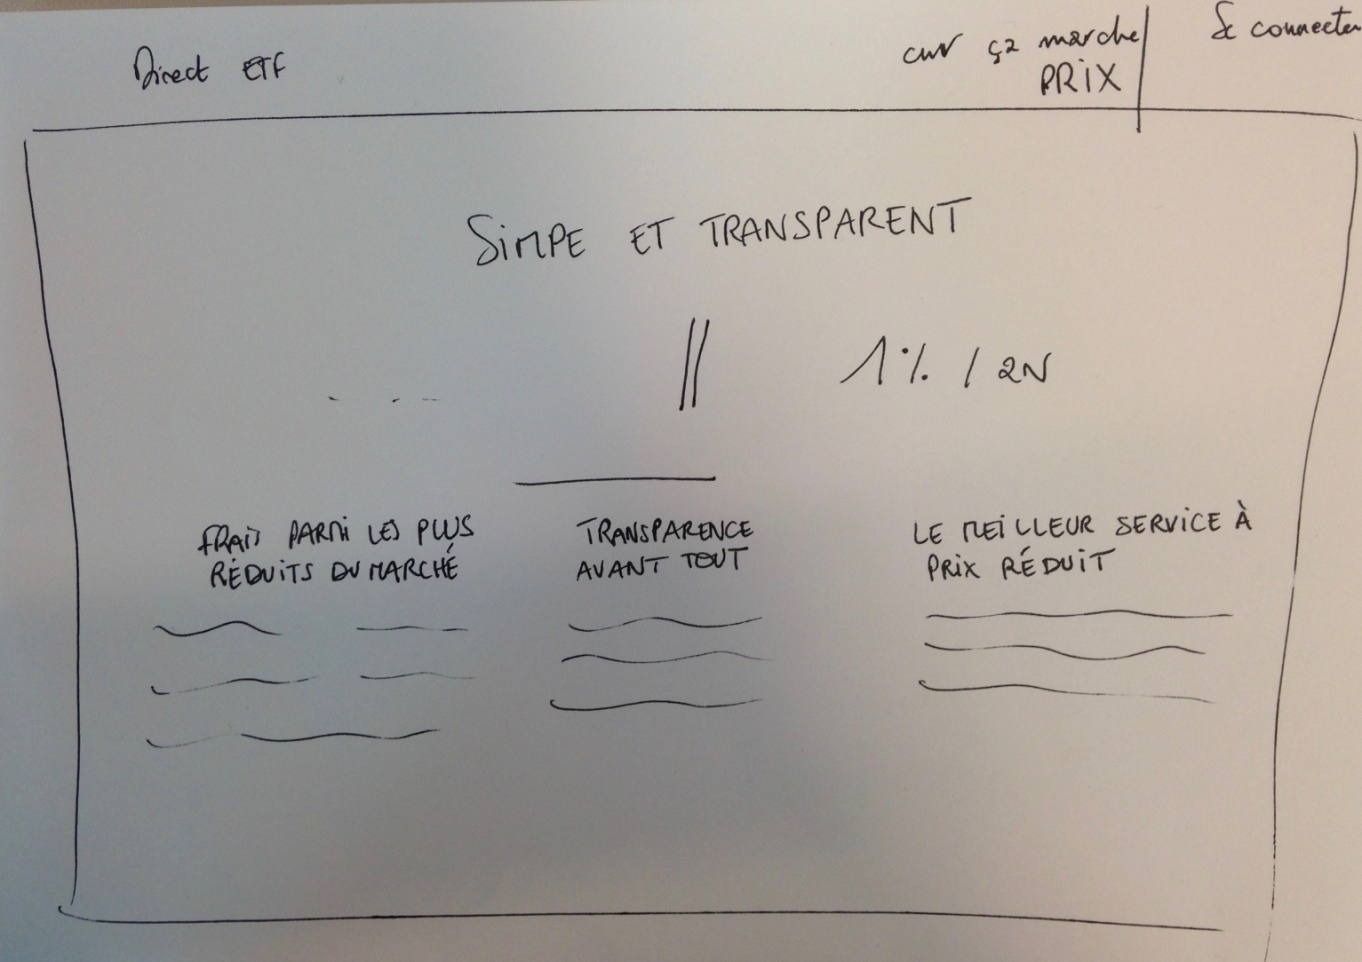 Direct ETF
ça marche
PRIX
Se connecter
SIMPE ET TRANSPARENT
1% / an
FRAIS PARMI LES PLUS
RÉDUITS DU MARCHÉ
TRANSPARENCE
AVANT TOUT
LE MEILLEUR SERVICE À
PRIX RÉDUIT